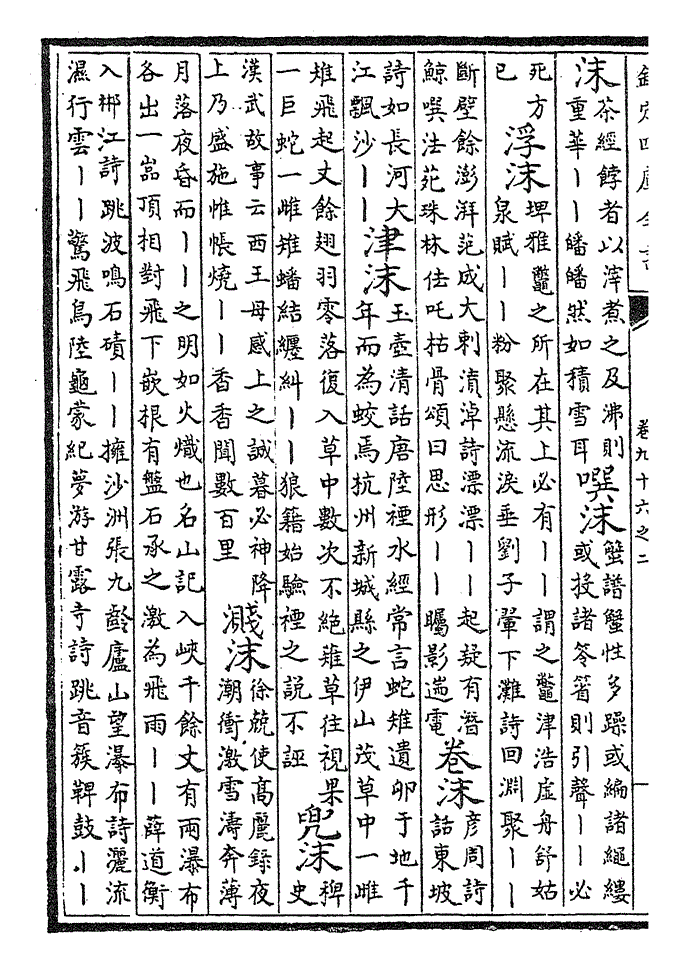 欽定四庫全書
卷九十六之二
沫
茶經餑者以滓煮之及沸則
重華丨丨皤皤然如積雪耳
噀沫
蟹譜蟹性多躁或編諸繩縷
或投諸笭箵則引聲丨丨必
死方
已
浮沫
埤雅鼈之所在其上必有丨丨謂之鼈津浩虛舟舒姑
泉賦丨丨粉聚懸流淚垂劉子翬下灘詩回淵聚丨丨
斷壁餘澎湃范成大刺濆淖詩漂漂丨丨起疑有潛
鯨噀法苑珠林佉吒枯骨頌曰思形丨丨矚影遄電
卷沫
彥周詩
話東坡
詩如長河大
江飄沙丨丨
津沫
玉壺清話唐陸禋水經常言蛇雉遺卵于地千
年而為蛟焉杭州新城縣之伊山茂草中一雌
雉飛起丈餘翅羽零落復入草中數次不絶薙草往視果
一巨蛇一雌雉蟠結纏糾丨丨狼籍始驗禋之說不誣
兜沫
稗
史
漢武故事云西王母感上之誠暮必神降
上乃盛施帷帳燒丨丨香香聞數百里
濺沫
徐兢使高麗錄夜
潮衝激雪濤奔薄
月落夜昏而丨丨之明如火熾也名山記入峽千餘丈有兩瀑布
各出一嵓頂相對飛下嵌根有盤石承之激為飛雨丨丨薛道衡
入郴江詩跳波鳴石磧丨丨擁沙洲張九齡廬山望瀑布詩灑流
濕行雲丨丨驚飛鳥陸龜蒙紀夢游甘露寺詩跳音簇鞞鼓丨丨